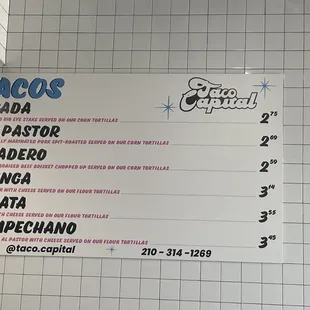 TACOS
Taco Capital
ADA
RIB EYE STAKE SERVED ON OUR CORN TORTILLAS
2 75
PASTOR
LY MARINATED PORK SPIT-ROASTED SERVED ON OUR CORN TORTILLAS
2 09
ADERO
BRAISED BEEF BRISKET CHOPPED UP SERVED ON OUR CORN TORTILLAS
2 59
NGA
WITH CHEESE SERVED ON OUR FLOUR TORTILLAS
3 14
ATA
WITH CHEESE SERVED ON OUR FLOUR TORTILLAS
3 55
MPECHANO
AL PASTOR WITH CHEESE SERVED ON OUR FLOUR TORTILLAS
3 45
@taco.capital 210-314-1269